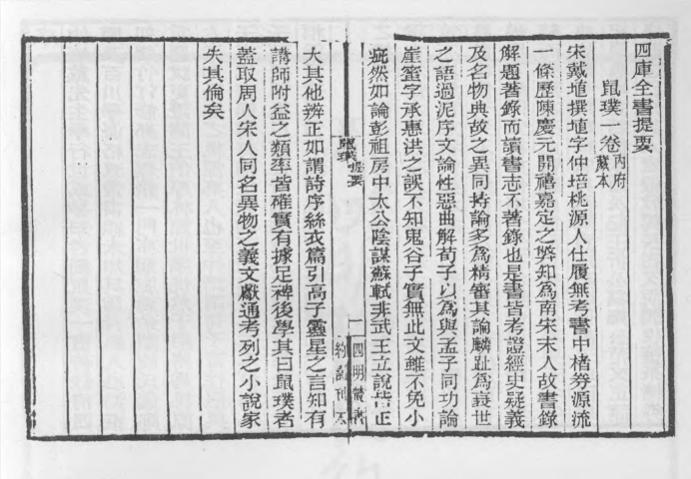 四庫全書提要
鼠璞一卷內府藏本
宋戴埴撰埴字仲培桃源人仕履無考書中楮券源流
一條歷陳慶元開禧嘉定之弊知為南宋末人故書錄
解題著錄而讀書志不著錄也是書皆考證經史疑義
及名物典故之異同持論多為精審其論麟趾為衰世
之語過泥序文論性惡曲解荀子以為與孟子同功論
崖蜜字承惠洪之誤不知鬼谷子實無此文雖不免小
疵然如論彭祖房中太公陰謀蘇軾非武王立說皆正
大其他辨正如謂詩序絲衣篇引高子靈星之言知有
講師附益之類率皆確實有據足裨後學其曰鼠璞者
蓋取周人宋人同名異物之義文獻通考列之小說家
失其倫矣
鼠璞 提要
一
四明叢書
約園刊本